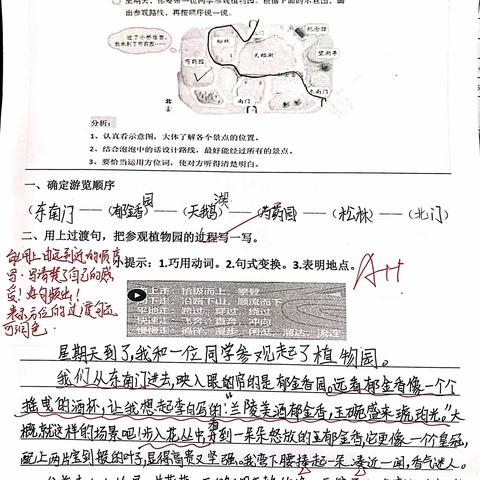 星期天，你要带一位同学参观植物园。根据下面的示意图，画
出参观路线，再按顺序说一说。
过了小桥往西，
就来到了芍药园……
松林
纪念馆
天鹅湖
望湖亭
芍药园
北
南门
东南门
分析：
1、认真看示意图，大体了解各个景点的位置。
2、结合泡泡中的话设计路线，最好能经过所有的景点。
3、要恰当运用方位词，使对方听得清楚明白。
一、确定游览顺序
园
湖
（东南门）——（郁金香）——（天鹅）——芍药园——（松林）——（北门）
二、用上过渡句，把参观植物园的过程写一写。
小提示：1.巧用动词。2.句式变换。3.表明地点。
A++
能用上由远到近的顺序
写，写清楚了自己的感
受！好句频出！
表示方位的过渡句还
可润色。
上走：拾级而上，攀登
下走：沿路下山，顺流而下
平地走：跨过，穿过，绕过
快速走：飞奔，直奔，冲向
慢慢走：徜徉，漫步，闲逛，溜达，流连
星期天到了，我和一位同学参观起了植物园。
我们从东南门进去，映入眼帘的是郁金香园。远看郁金香像一个个
摇曳的酒杯，让我想起李白写的：“兰陵美酒郁金香，玉碗盛来琥珀光。”大
概就这样的场景吧！步入花丛中，看到一朵怒放的王郁金香，它更像一个皇冠，
配上两片宝剑般的叶子，显得高贵又坚强。我弯下腰接起一朵凑近一闻，香气迷人。